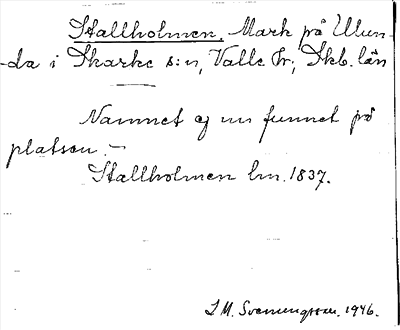 Stallholmen, Mark på Ulun-
da i Skarke s:n, Valle hr., Skb. län
Namnet ej nu funnet på
platsen. –
Stallholmen lm. 1837.
J M. Svenungsson. 1946.